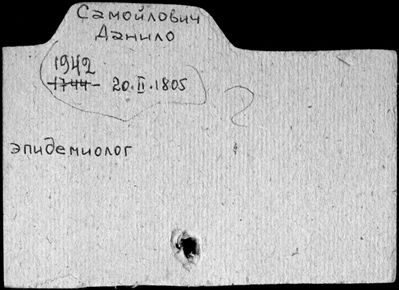 Самойлович
Данило
1942
1744 - 20.II.1805
?
эпидемиолог